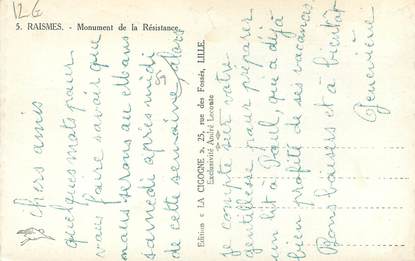 12G
5. RAISMES. - Monument de la Résistance.
Chers amis
quelques mots pour
vous faire savoir que
nous serons au
samedi après midi
de cette semaine, alors
je compte sur votre
gentillesse pour préparer
un lit à Paul, qui a déjà
bien profité de ses vacances.
Bons baisers et à bientôt
Geneviève
Edition « LA CIGOGNE », 25, rue des Fossés, LILLE.
Exclusivité André Lecomte